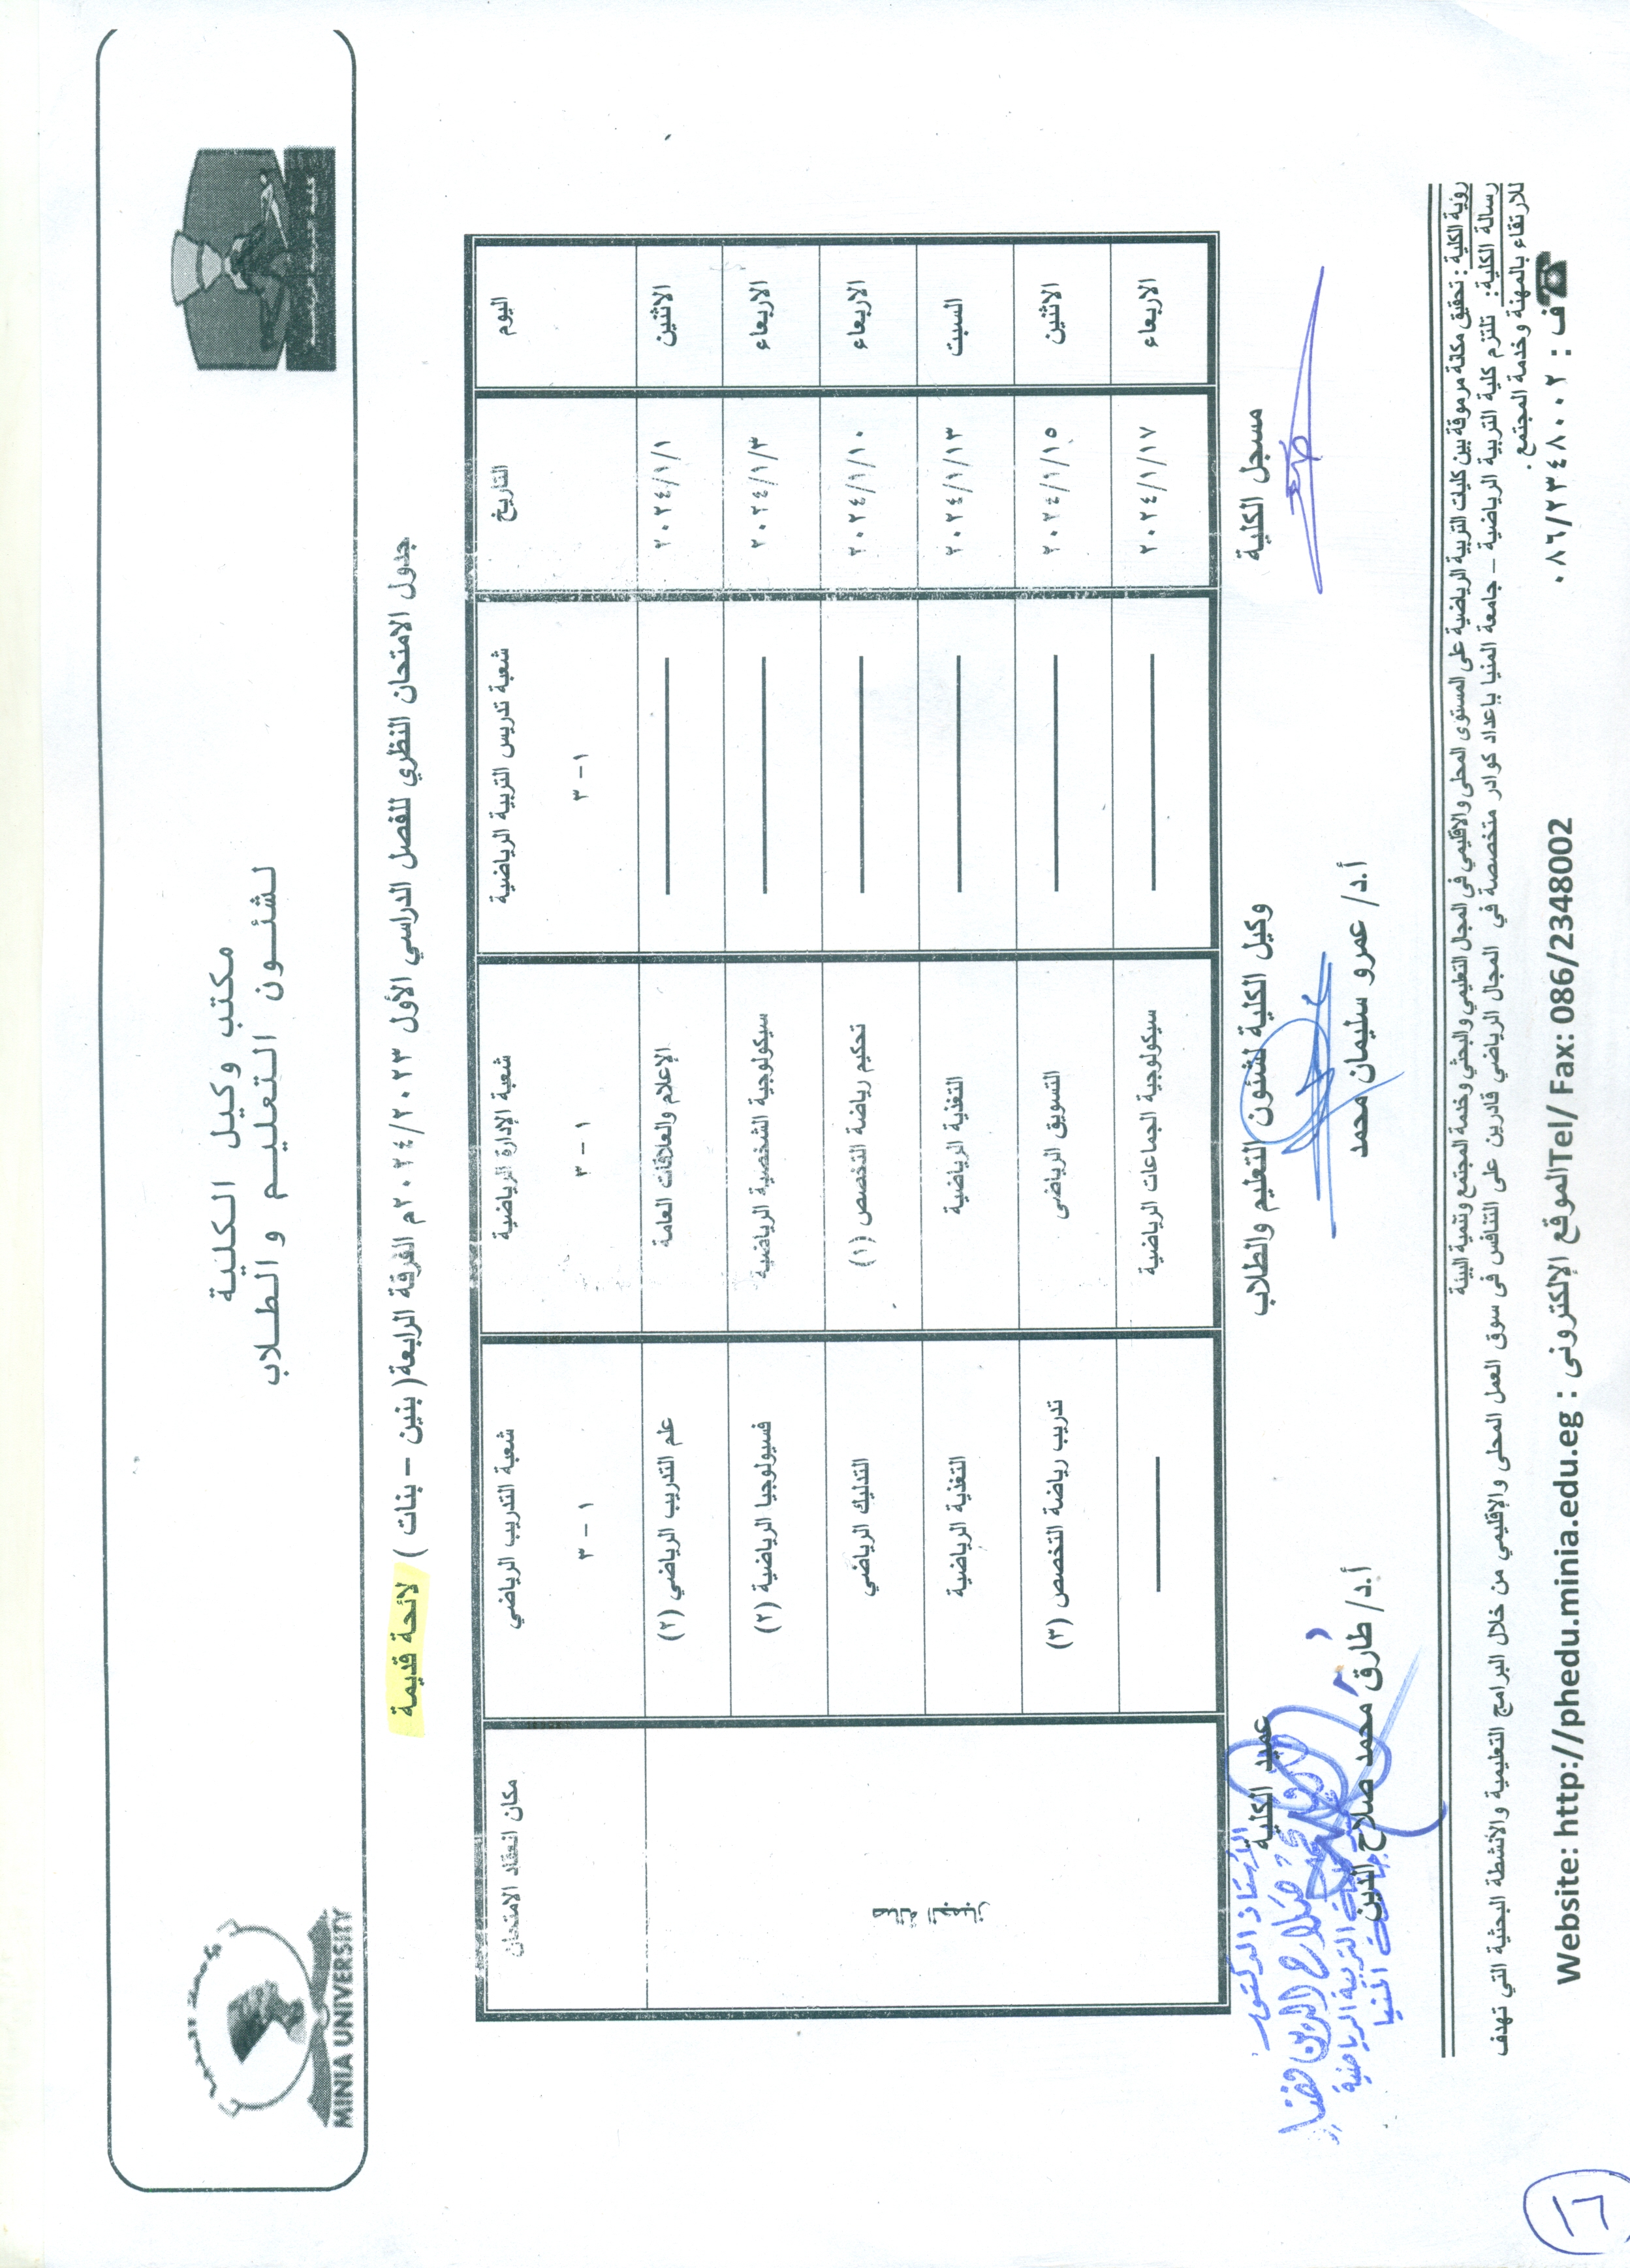 كلية التربية الرياضية
MINIA UNIVERSITY
مكتب وكيل الكلية
لشئون التعليم والطلاب
جدول الامتحان النظري للفصل الدراسي الأول ٢٠٢٤/٢٠٢٣م الفرقة الرابعة( بنين – بنات ) لائحة قديمة
اليوم التاريخ شعبة تدريس التربية الرياضية شعبة الإدارة الرياضية شعبة التدريب الرياضي مكان انعقاد الامتحان
١ - ٣ ١ - ٣ ١ - ٣
الاثنين ٢٠٢٤/١/١ الإعلام والعلاقات العامة علم التدريب الرياضي (٢)
الاربعاء ٢٠٢٤/١/٣ سيكولوجية الشخصية الرياضية فسيولوجيا الرياضية (٢)
الاربعاء ٢٠٢٤/١/١٠ تحكيم رياضة التخصص (١) التدليك الرياضي
السبت ٢٠٢٤/١/١٣ التغذية الرياضية التغذية الرياضية
الاثنين ٢٠٢٤/١/١٥ التسويق الرياضى تدريب رياضة التخصص (٣)
الاربعاء ٢٠٢٤/١/١٧ سيكولوجية الجماعات الرياضية
صالة
مسجل الكلية وكيل الكلية لشئون التعليم والطلاب عميد الكلية
أ.د/ عمرو سليمان محمد أ.د/ طارق محمد صلاح الدين
الأستاذ الدكتور
صلاح الدين فضل
كلية التربية الرياضية
جامعة المنيا
رؤية الكلية : تحقيق مكانة مرموقة بين كليات التربية الرياضية على المستوى المحلى والاقليمي فى المجال التعليمي والبحثي وخدمة المجتمع وتنمية البيئة
رسالة الكلية: تلتزم كلية التربية الرياضية – جامعة المنيا بإعداد كوادر متخصصة في المجال الرياضي قادرين على التنافس فى سوق العمل المحلى والإقليمي من خلال البرامج التعليمية والأنشطة البحثية التي تهدف
للارتقاء بالمهنة وخدمة المجتمع .
ف : ٠٨٦/٢٣٤٨٠٠٢ Tel/ Fax: 086/2348002 الموقع الإلكترونى : Website: http://phedu.minia.edu.eg
١٦